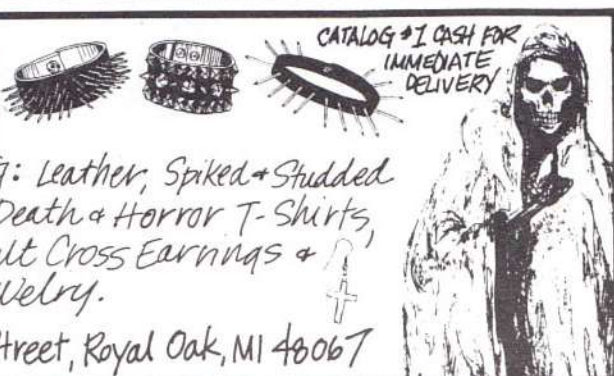 CATALOG $1 CASH FOR
IMMEDIATE
DELIVERY
g: Leather, Spiked & Studded
Death & Horror T-Shirts,
lt Cross Earrings &
welry.
treet, Royal Oak, MI 48067